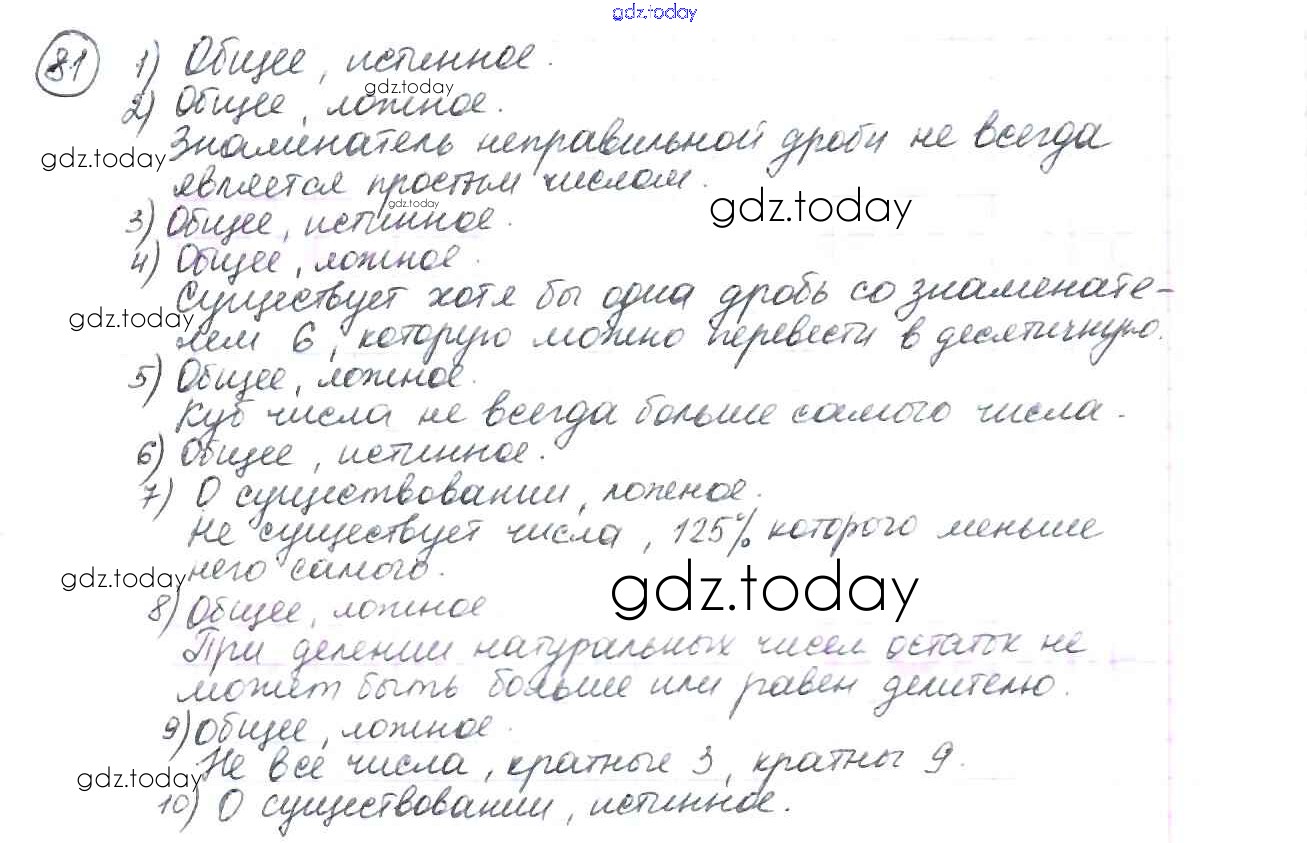 gdz.today
81 1) Общее, истинное.
gdz.today
2) Общее, ложное.
Знаменатель неправильной дроби не всегда
gdz.today
является простым числом.
gdz.today
gdz.today
3) Общее, истинное.
4) Общее, ложное.
Существует хотя бы одна дробь со знаменате-
gdz.today
лем 6, которую можно перевести в десятичную.
5) Общее, ложное.
Куб числа не всегда больше самого числа.
6) Общее, истинное.
7) О существовании, ложное.
Не существует числа, 125% которого меньше
него самого.
gdz.today
gdz.today
8) Общее, ложное
При делении натуральных чисел остаток не
может быть больше или равен делителю.
9) Общее, ложное.
Не все числа, кратные 3, кратны 9.
gdz.today
10) О существовании, истинное.